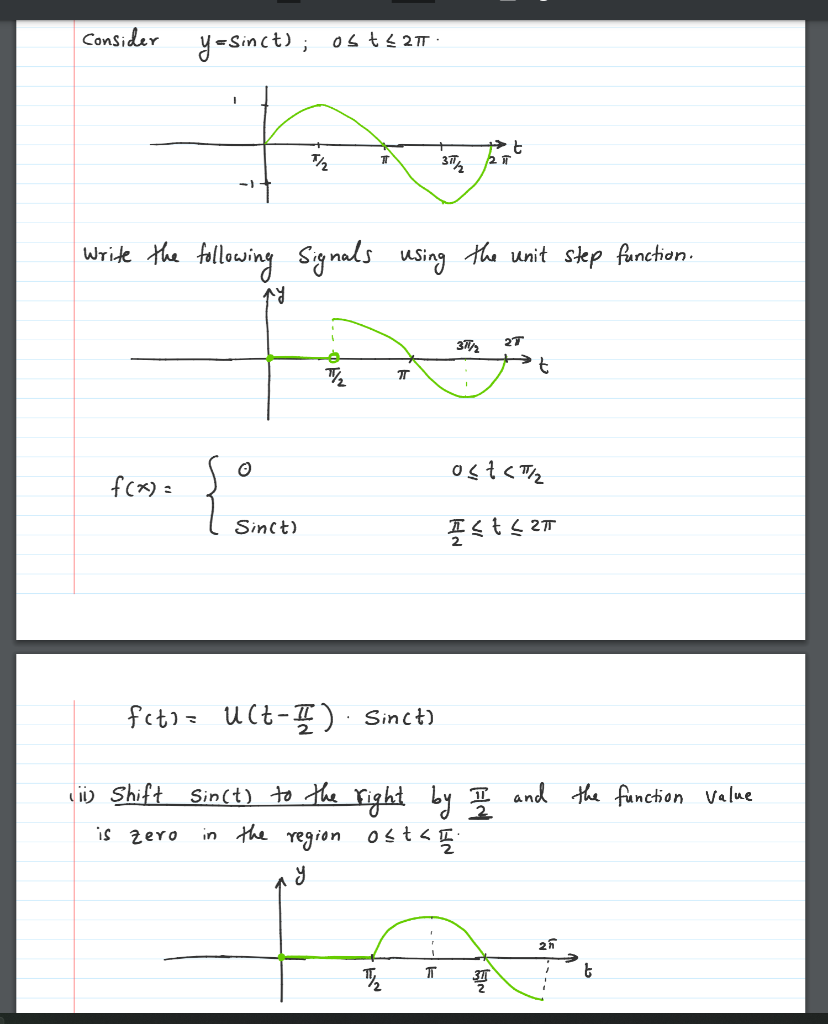 Consider y=sin(t) ; 0≤ t ≤ 2π .
1
t
π/2 π 3π/2 2π
-1
Write the following signals using the unit step function.
y
3π/2 2π
t
π/2 π
f(x) = { 0 0≤t<π/2
sin(t) π/2 ≤ t ≤ 2π
f(t) = u(t-π/2) . sin(t)
ii) Shift sin(t) to the right by π/2 and the function value
is zero in the region 0≤t<π/2.
y
2π
t
π/2 π 3π/2